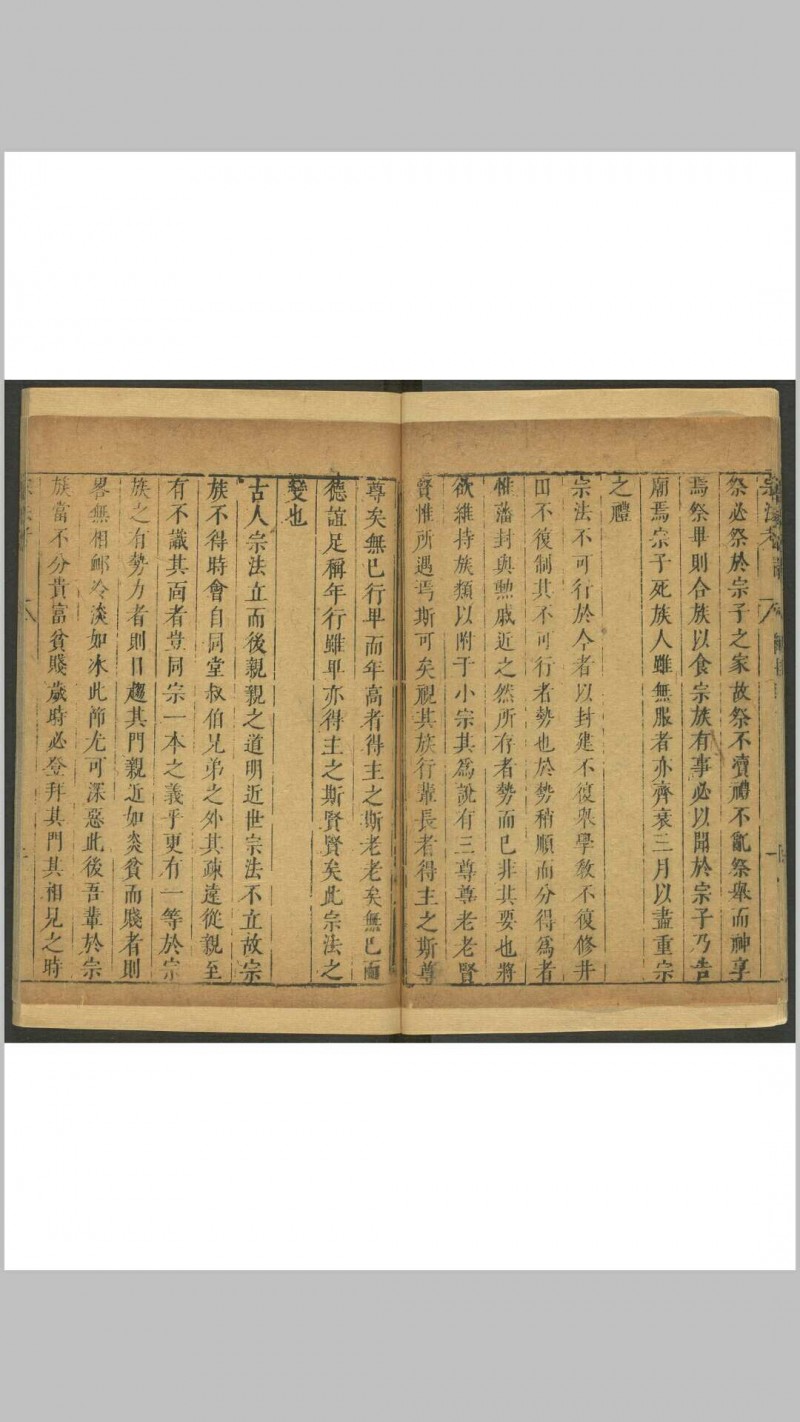 祭必祭於宗子之家故祭不瀆禮不亂祭舉而神享
焉祭畢則合族以食宗族有事必以聞於宗子乃告
廟焉宗子死族人雖無服者亦齊衰三月以盡重宗
之禮
宗法不可行於今者以封建不復舉學敎不復修井
田不復制其不可行者勢也於勢稍順而分得爲者
惟藩封與勲戚近之然所存者勢而已非其要也將
欲維持族類以附于小宗其爲說有三尊尊老老賢
賢惟所遇焉斯可矣視其族行輩長者得主之斯尊
尊矣無已行卑而年高者得主之斯老老矣無已而
德誼足稱年行雖卑亦得主之斯賢賢矣此宗法之
變也
古人宗法立而後親親之道明近世宗法不立故宗
族不得時會自同堂叔伯兄弟之外其疎遠從親至
有不識其面者豈同宗一本之義乎更有一等於宗
族之有勢力者則日趨其門親近如炎貧而賤者則
畧無相䘏冷淡如冰此節尤可深惡此後吾輩於宗
族當不分貴富貧賤歲時必登拜其門其相見之時